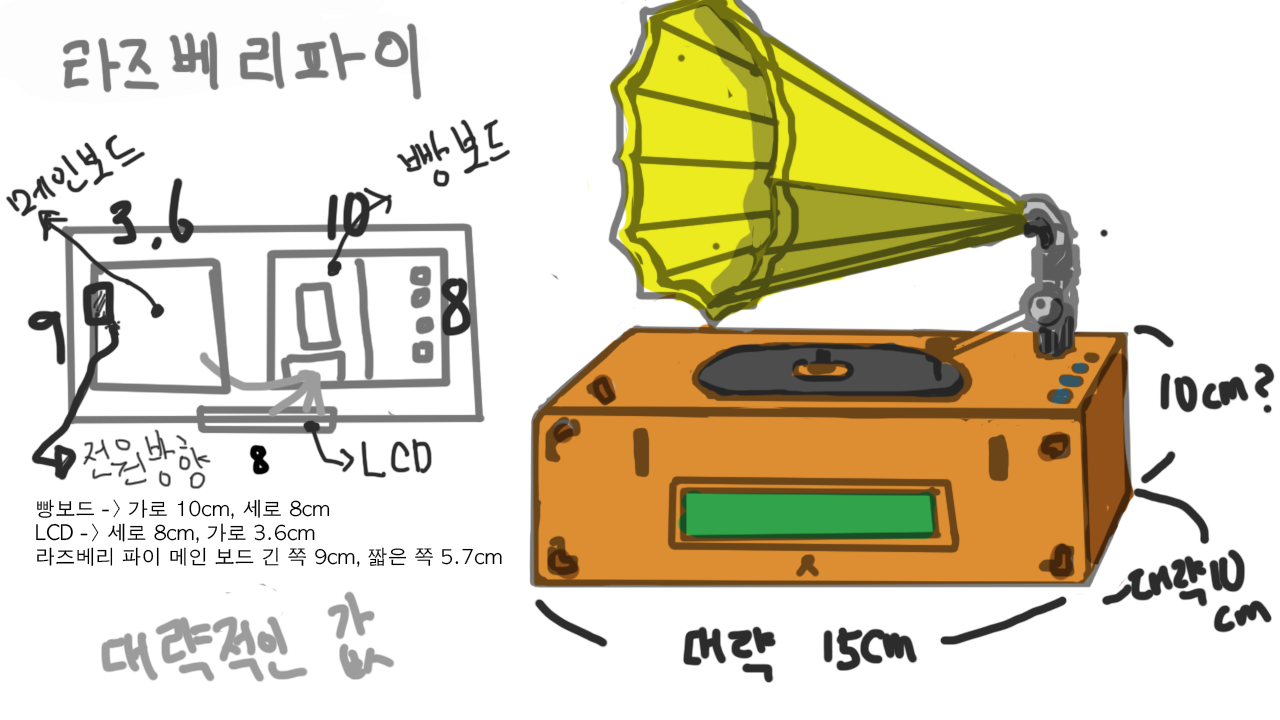 라즈베리파이
메인보드
빵보드
3.6
10
9
8
전원방향
8
LCD
빵보드 -> 가로 10cm, 세로 8cm
LCD -> 세로 8cm, 가로 3.6cm
라즈베리 파이 메인 보드 긴 쪽 9cm, 짧은 쪽 5.7cm
대략적인 값
10cm?
대략10
cm
대략 15cm